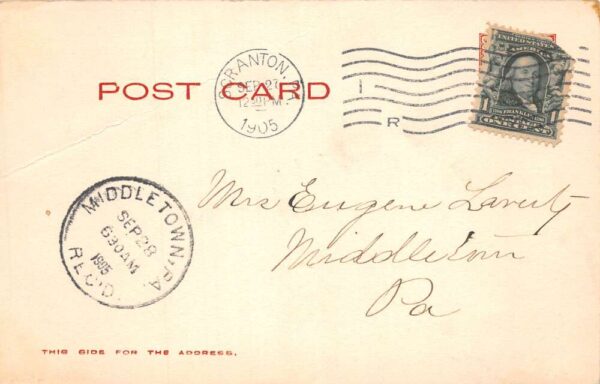 POST CARD
SCRANTON, PA
SEP 27
12 30 PM
1905
R
UNITED STATES
OF AMERICA
FRANKLIN
1 1
ONE CENT
MIDDLETOWN, PA
SEP 28
630 AM
1905
REC'D.
Mrs Eugene Laverty
Middletown
Pa
THIS SIDE FOR THE ADDRESS.